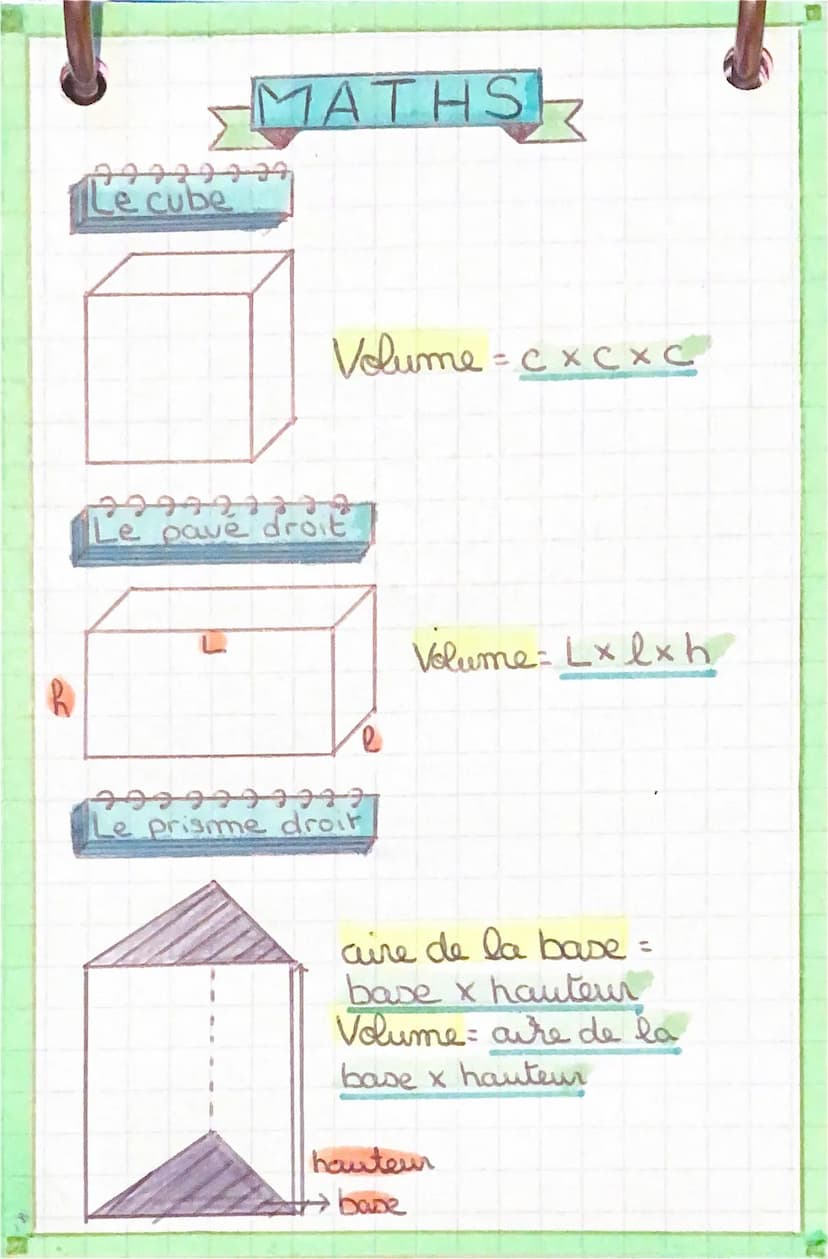 MATHS
Le cube
Volume = c x c x c
Le pavé droit
L
Volume = L x l x h
h
l
Le prisme droit
aire de la base =
base x hauteur
Volume = aire de la
base x hauteur
hauteur
base